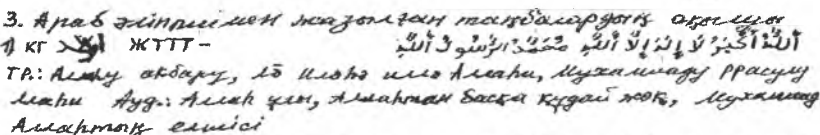 3. Араб әліппиімен жазылған таңбалардың оқылуы
1) КГ ЖТТТ- اللهُ أَكْبَرُ لَا إِلٰهَ إِلَّا اللهُ مُحَمَّدٌ الرَّسُولُ اللهِ
ТР.: Аллаһу акбару, лә илаһа илла Ллаһи, Мухаммаду ррасулу
Ллаһи Ауд.: Аллаһ ұлы, Аллаһтан басқа құдай жоқ, Мұхаммад
Аллаһтың елшісі